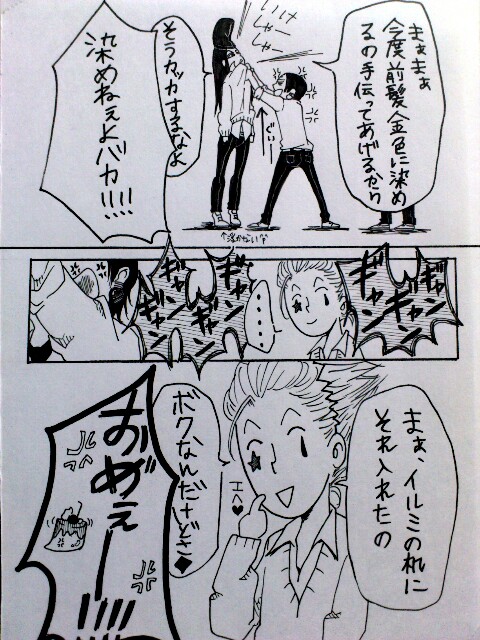 まぁまぁ
今度前髪金色に染め
るの手伝ってあげるから
いけ
しゃー
しゃー
そうカッカするなよ
ぐいー
染めねぇよバカ!!!!
ギャン
ギャン
ギャン
・・・・
ギャン
ギャン
ギャン
ギャン
まぁ、イルミの机に
それ入れたの
エヘ♥
ボクなんだけどさ♦
おめぇーー!!!!